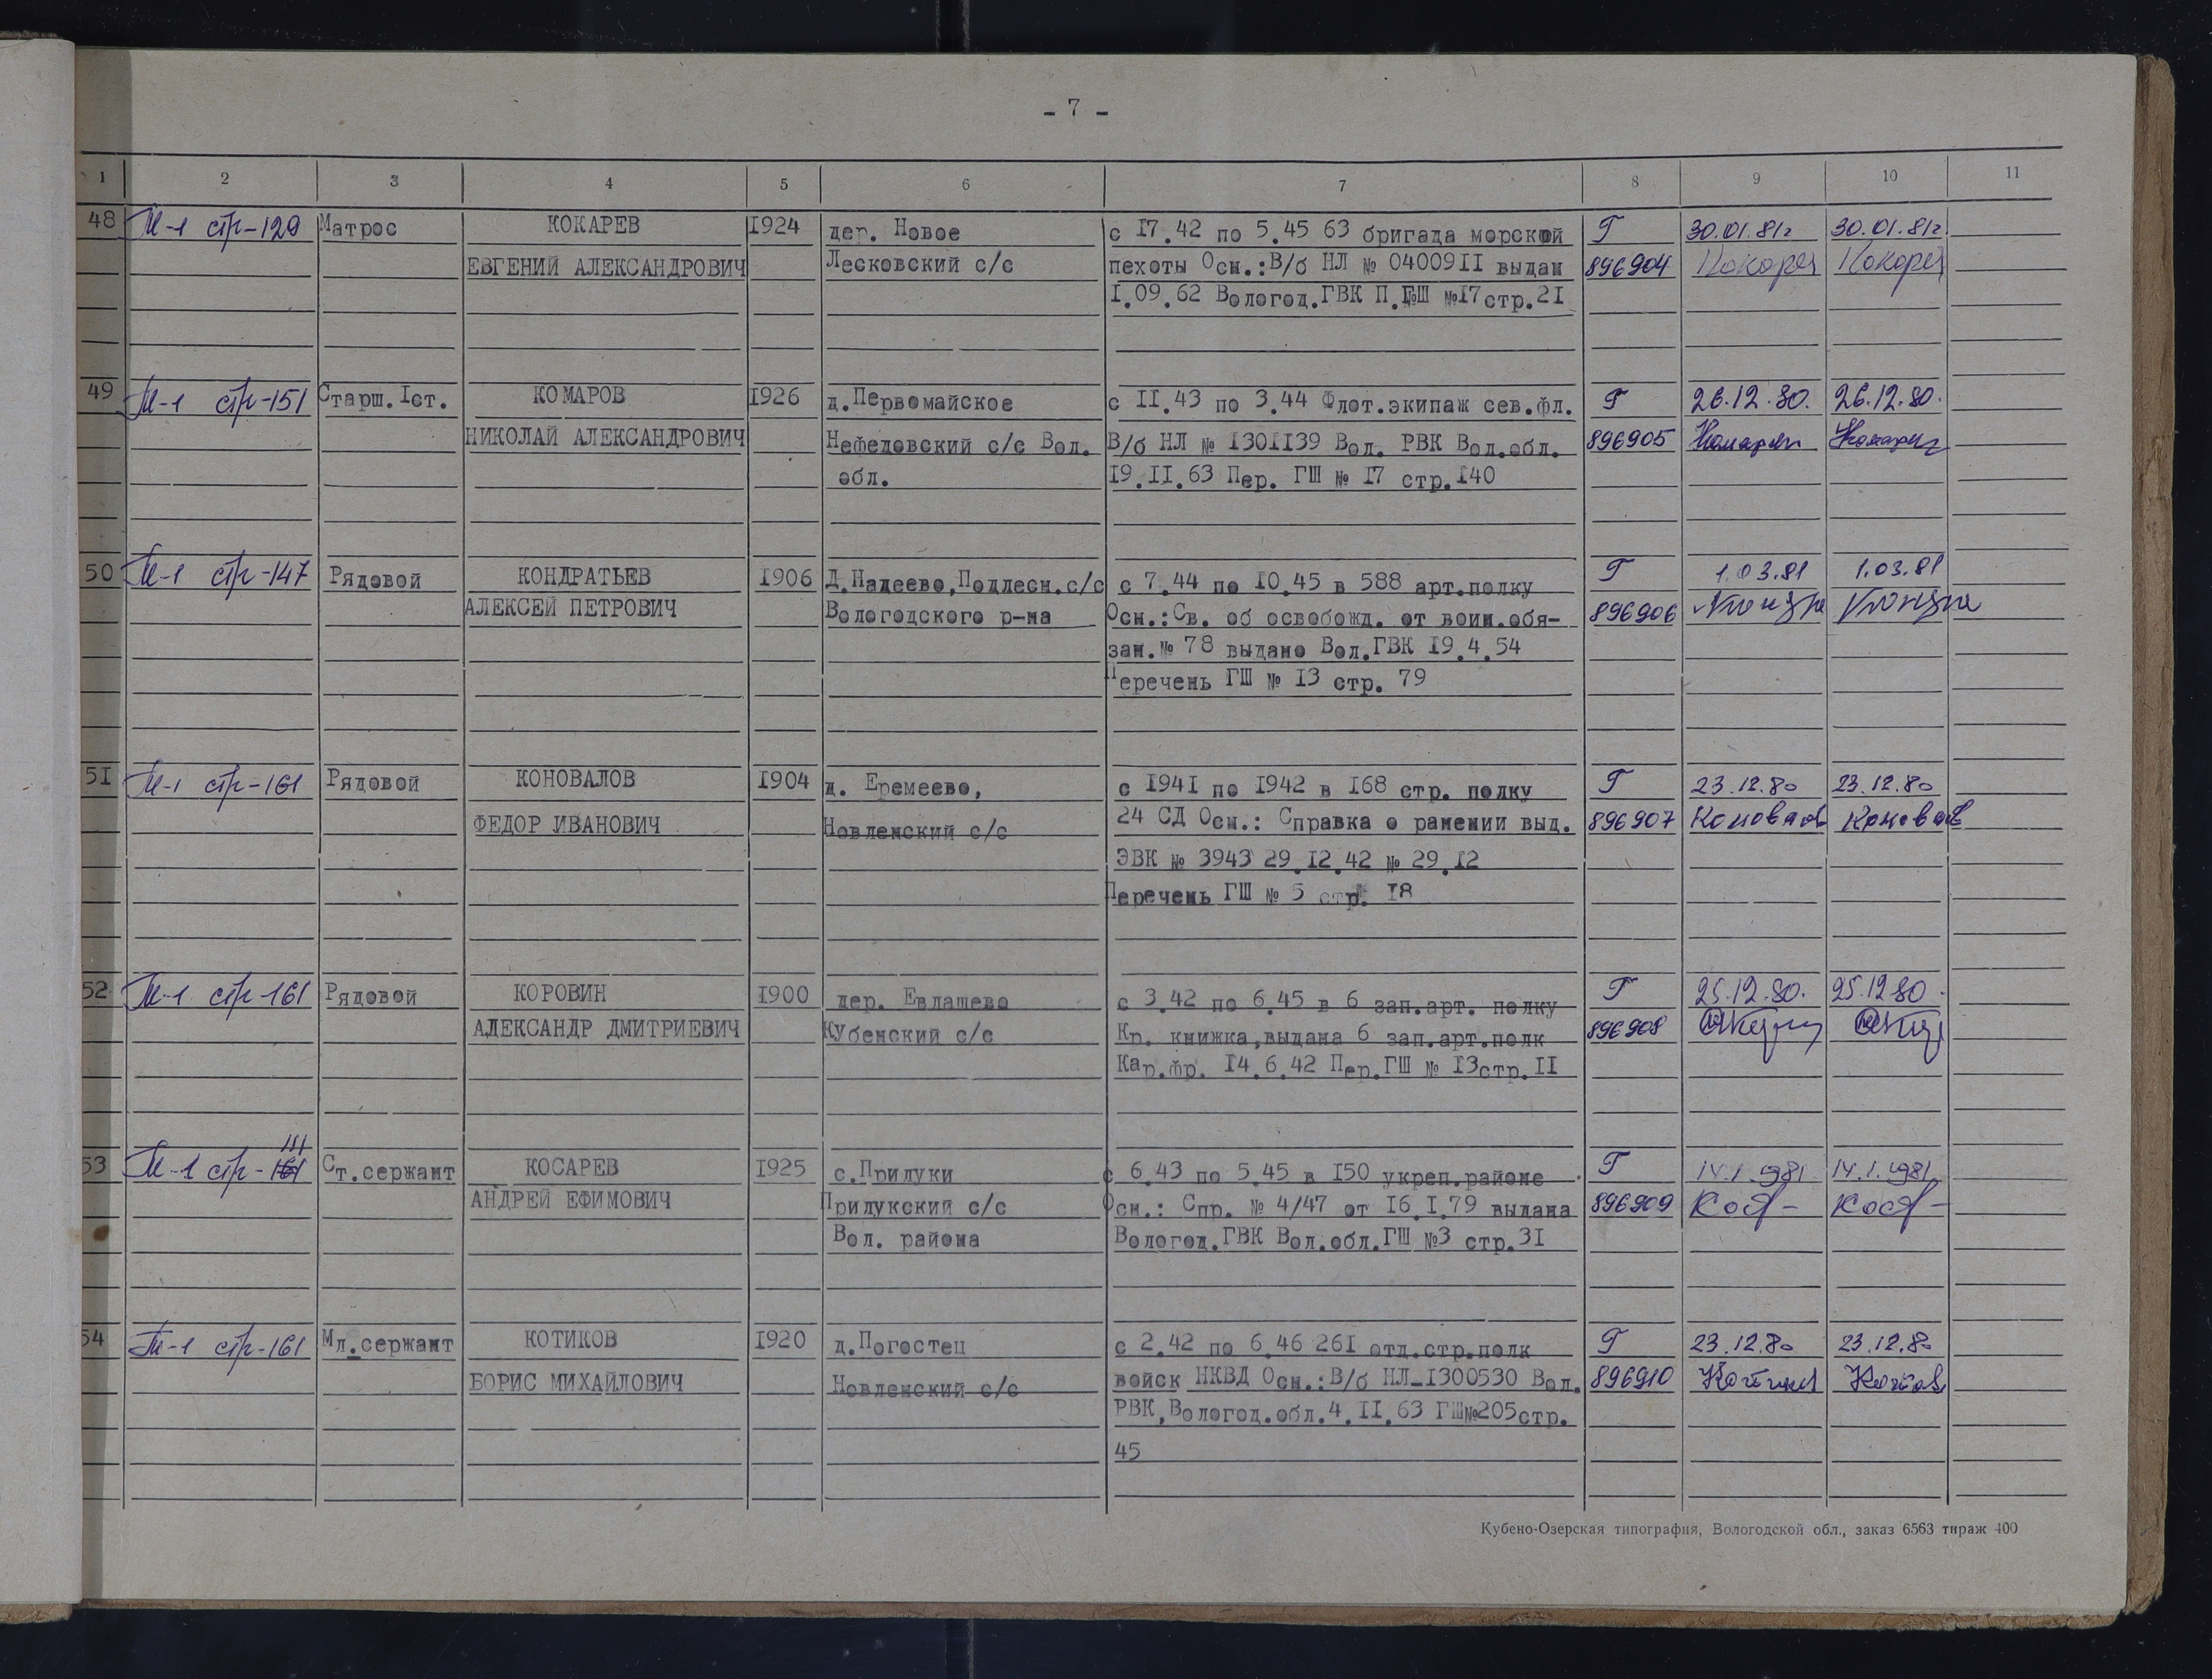 - 7 -
1 2 3 4 5 6 7 8 9 10 11
48 М-1 стр-129 Матрос КОКАРЕВ 1924 дер. Новое с 17.42 по 5.45 63 бригада морской Г 30.01.81г 30.01.81г
ЕВГЕНИЙ АЛЕКСАНДРОВИЧ Лесковский с/с пехоты Осн.:В/б НЛ № 0400911 выдан 896904 Кокарев Кокарев
1.09.62 Вологод.ГВК П.ГШ №17стр.21
49 М-1 стр-151 Старш.1ст. КОМАРОВ 1926 д.Первомайское с 11.43 по 3.44 Флот.экипаж сев.фл. Г 26.12.80. 26.12.80.
НИКОЛАЙ АЛЕКСАНДРОВИЧ Нефедовский с/с Вол. В/б НЛ № 1301139 Вол. РВК Вол.обл. 896905 Комаров Комаров
обл. 19.11.63 Пер. ГШ № 17 стр.140
50 М-1 стр-147 Рядовой КОНДРАТЬЕВ 1906 Д.Надеево,Подлесн.с/с с 7.44 по 10.45 в 588 арт.полку Г 1.03.81 1.03.81
АЛЕКСЕЙ ПЕТРОВИЧ Вологодского р-на Осн.:Св. об освобожд. от воин.обя- 896906
зан.№ 78 выдано Вол.ГВК 19.4.54
Перечень ГШ № 13 стр. 79
51 М-1 стр-161 Рядовой КОНОВАЛОВ 1904 д. Еремеево, с 1941 по 1942 в 168 стр. полку Г 23.12.80 23.12.80
ФЕДОР ИВАНОВИЧ Новленский с/с 24 СД Осн.: Справка о ранении выд. 896907 Коновалов Коновалов
ЭВК № 3943 29.12.42 № 29.12
Перечень ГШ № 5 стр. 18
52 М-1 стр-161 Рядовой КОРОВИН 1900 дер. Евлашево с 3.42 по 6.45 в 6 зап.арт. полку Г 25.12.80. 25.12 80.
АЛЕКСАНДР ДМИТРИЕВИЧ Кубенский с/с Кр. книжка,выдана 6 зап.арт.полк 896908
Кар.фр. 14.6.42 Пер.ГШ № 13стр.11
111
53 М-1 стр-161 Ст.сержант КОСАРЕВ 1925 с.Прилуки с 6.43 по 5.45 в 150 укреп.районе Г 14.1.1981 14.1.1981
АНДРЕЙ ЕФИМОВИЧ Прилукский с/с Осн.: Спр. № 4/47 от 16.1.79 выдана 896909
Вол. района Вологод.ГВК Вол.обл.ГШ №3 стр.31
54 М-1 стр-161 Мл.сержант КОТИКОВ 1920 д.Погостец с 2.42 по 6.46 261 отд.стр.полк Г 23.12.80 23.12.80
БОРИС МИХАЙЛОВИЧ Новленский с/с войск НКВД Осн.:В/б НЛ-1300530 Вол. 896910 Котиков Котиков
РВК,Вологод.обл.4.11.63 ГШ№205стр.
45
Кубено-Озерская типография, Вологодской обл., заказ 6563 тираж 400